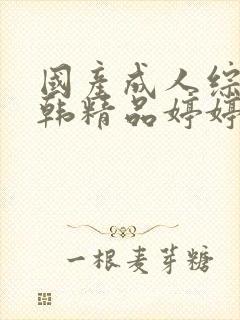 國產成人综
韩精品婷婷
一根麦芽糖